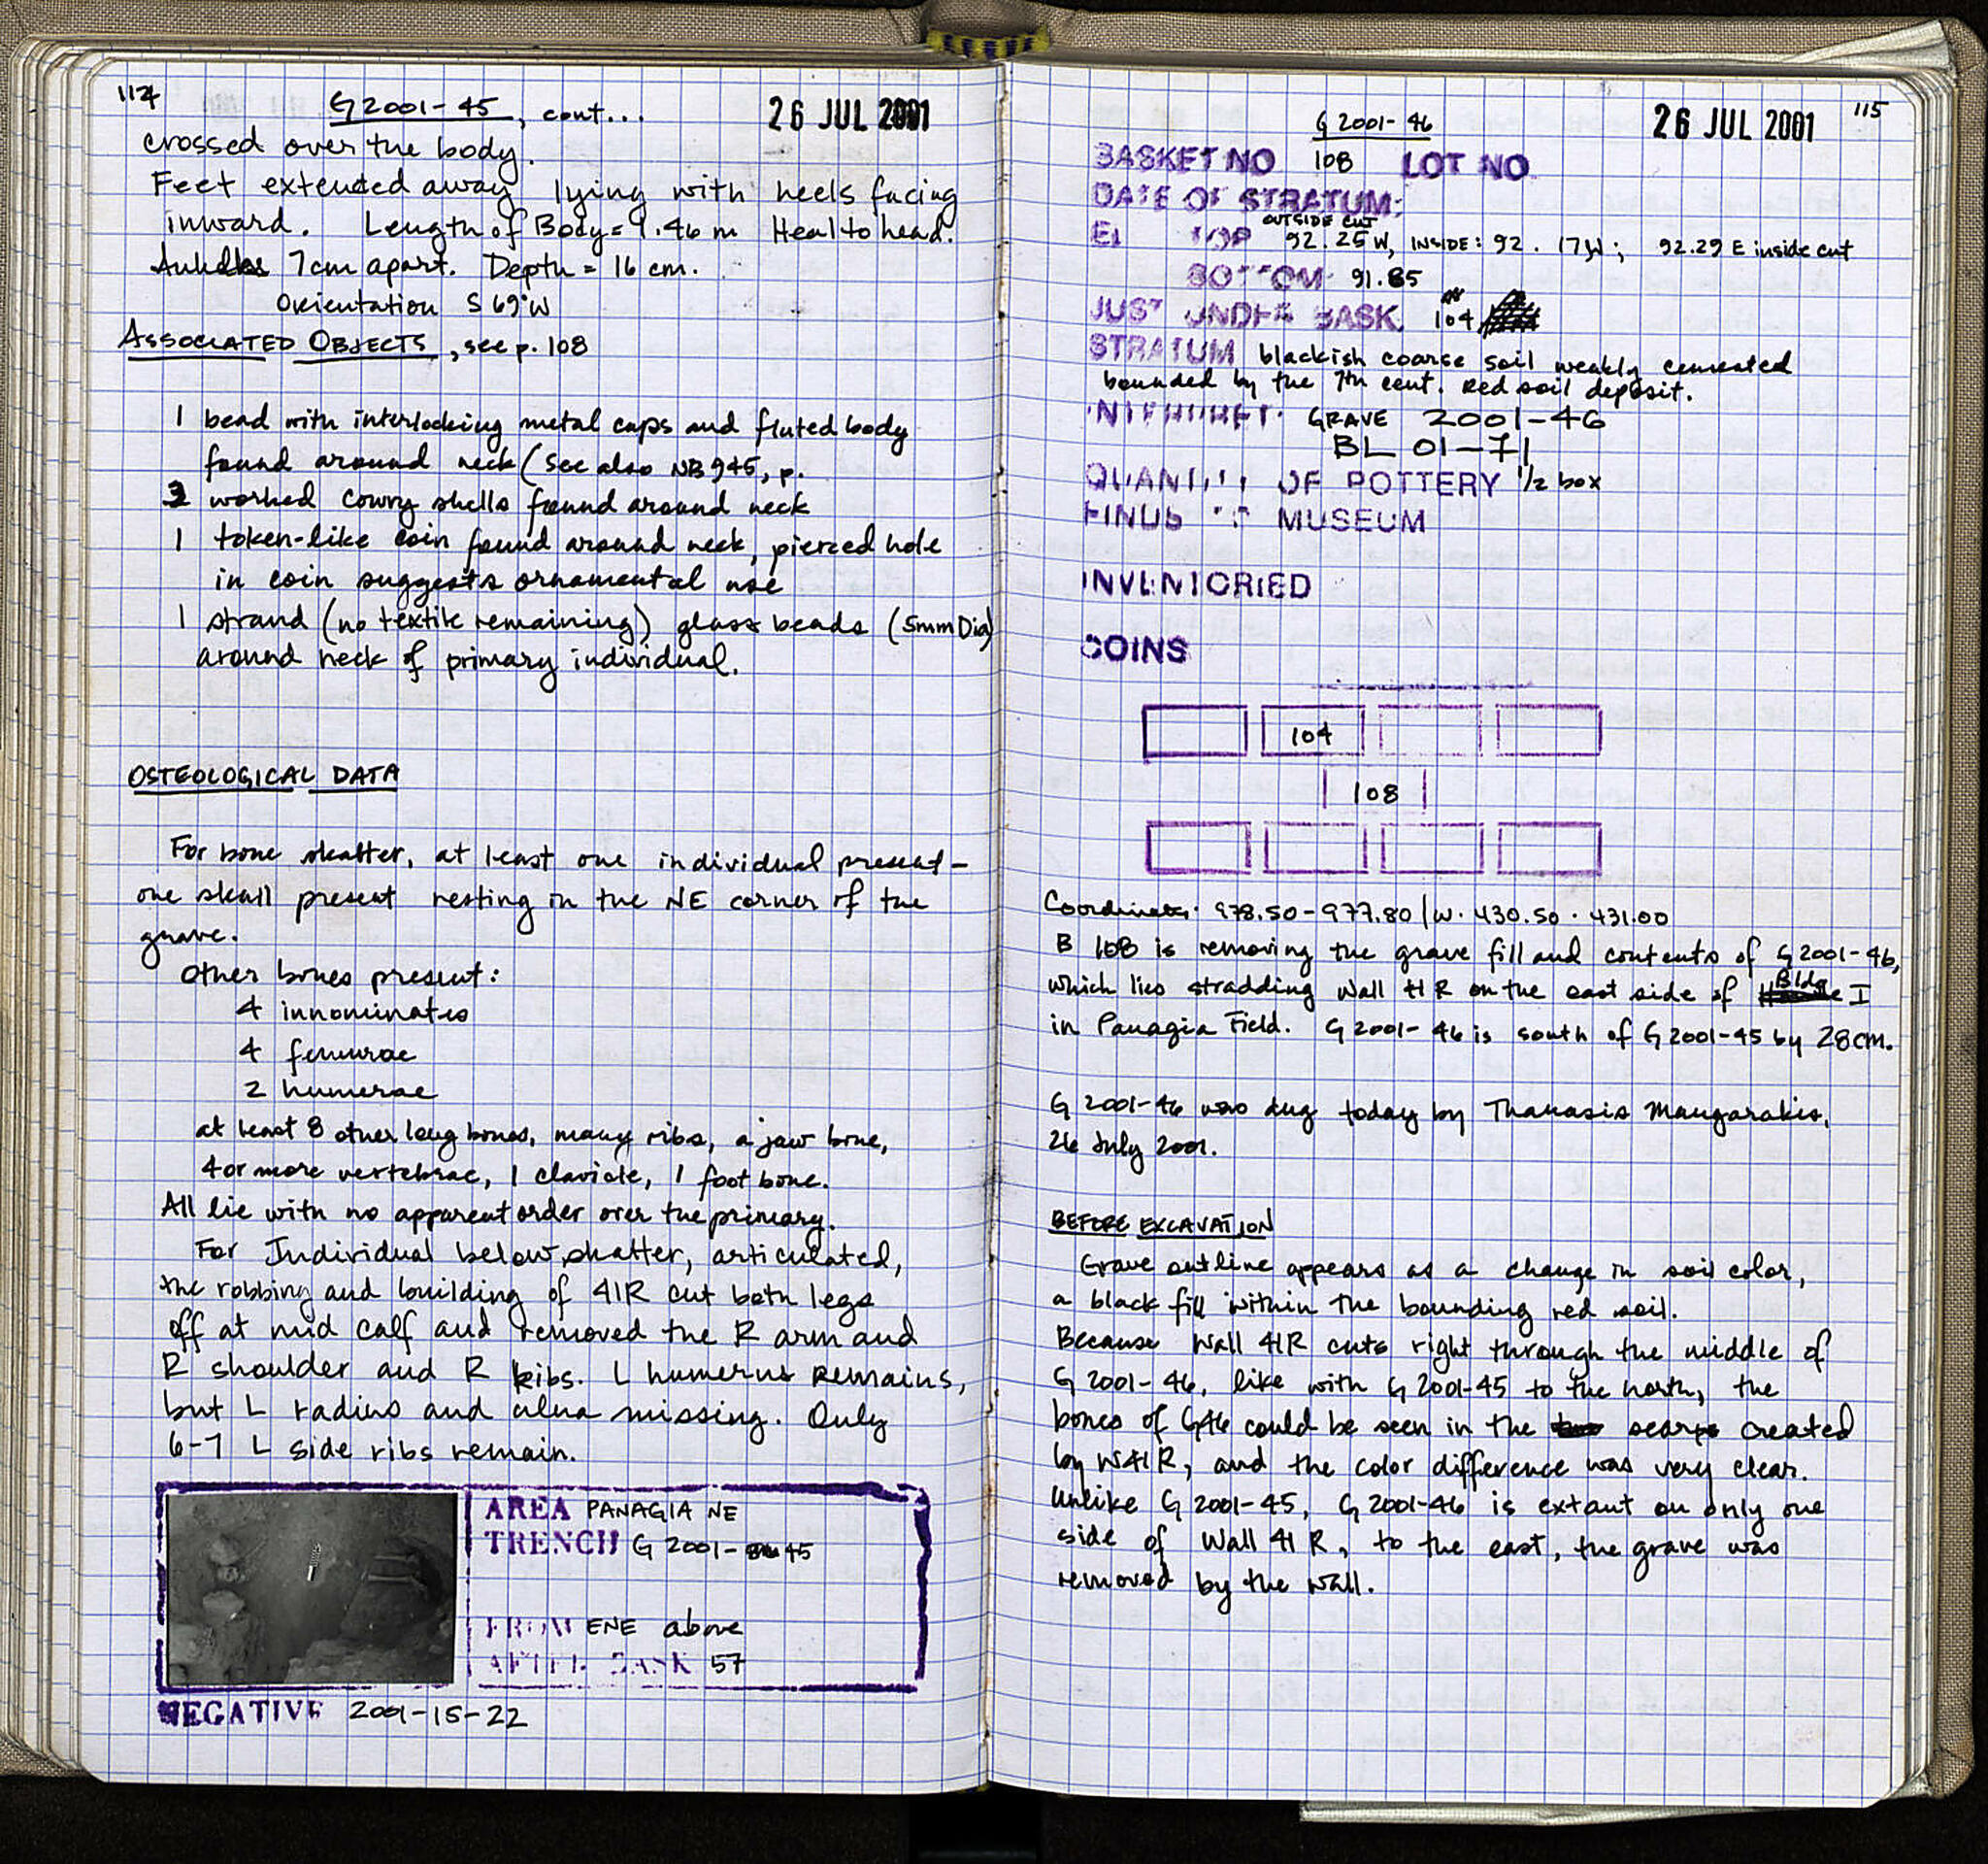 114
G 2001-45, cont...
26 JUL 2001
crossed over the body.
Feet extended away lying with heels facing
inward. Length of Body = 1.46 m Heal to head.
7cm apart. Depth = 16 cm.
Orientation S 69°W
ASSOCIATED OBJECTS, see p. 108
1 bead with interlocking metal caps and fluted body
found around neck (see also NB 945, p.
3 worked cowry shells found around neck
1 token-like coin found around neck, pierced hole
in coin suggests ornamental use
1 strand (no textile remaining) glass beads (5mm Dia)
around neck of primary individual.
OSTEOLOGICAL DATA
For bone skatter, at least one individual present -
one skull present resting in the NE corner of the
grave.
Other bones present:
4 innominates
4 femurae
2 humerae
at least 8 other long bones, many ribs, a jaw bone,
4 or more vertebrae, 1 clavicle, 1 foot bone.
All lie with no apparent order over the primary.
For Individual below skatter, articulated,
the robbing and building of 41R cut both legs
off at mid calf and removed the R arm and
R shoulder and R ribs. L humerus remains,
but L radius and ulna missing. Only
6-7 L side ribs remain.
AREA PANAGIA NE
TRENCH G 2001-45
FROM ENE above
AFTER BASK 57
NEGATIVE 2001-15-22
115
G 2001-46
26 JUL 2001
BASKET NO 108 LOT NO
DATE OF STRATUM:
OUTSIDE CUT
El TOP 92.25 W, INSIDE: 92.17W; 92.29 E inside cut
BOTTOM 91.85
JUST UNDER BASK. 104
STRATUM blackish coarse soil weakly cemented
bounded by the 7th cent. Red soil deposit.
INTERPRET. GRAVE 2001-46
BL 01-71
QUANTITY OF POTTERY 1/2 box
FINDS TO MUSEUM
INVENTORIED
COINS
104
108
Coordinates: 978.50-977.80 / W. 430.50 - 431.00
B 108 is removing the grave fill and contents of G 2001-46,
which lies stradding Wall 41R on the east side of Bldg I
in Panagia Field. G 2001-46 is south of G 2001-45 by 28cm.
G 2001-46 was dug today by Thanasis Maugarakis,
26 July 2001.
BEFORE EXCAVATION
Grave outline appears as a change in soil color,
a black fill within the bounding red soil.
Because Wall 41R cuts right through the middle of
G 2001-46, like with G 2001-45 to the north, the
bones of G46 could be seen in the scarps created
by W41R, and the color difference was very clear.
Unlike G 2001-45, G 2001-46 is extant on only one
side of Wall 41R, to the east, the grave was
removed by the wall.